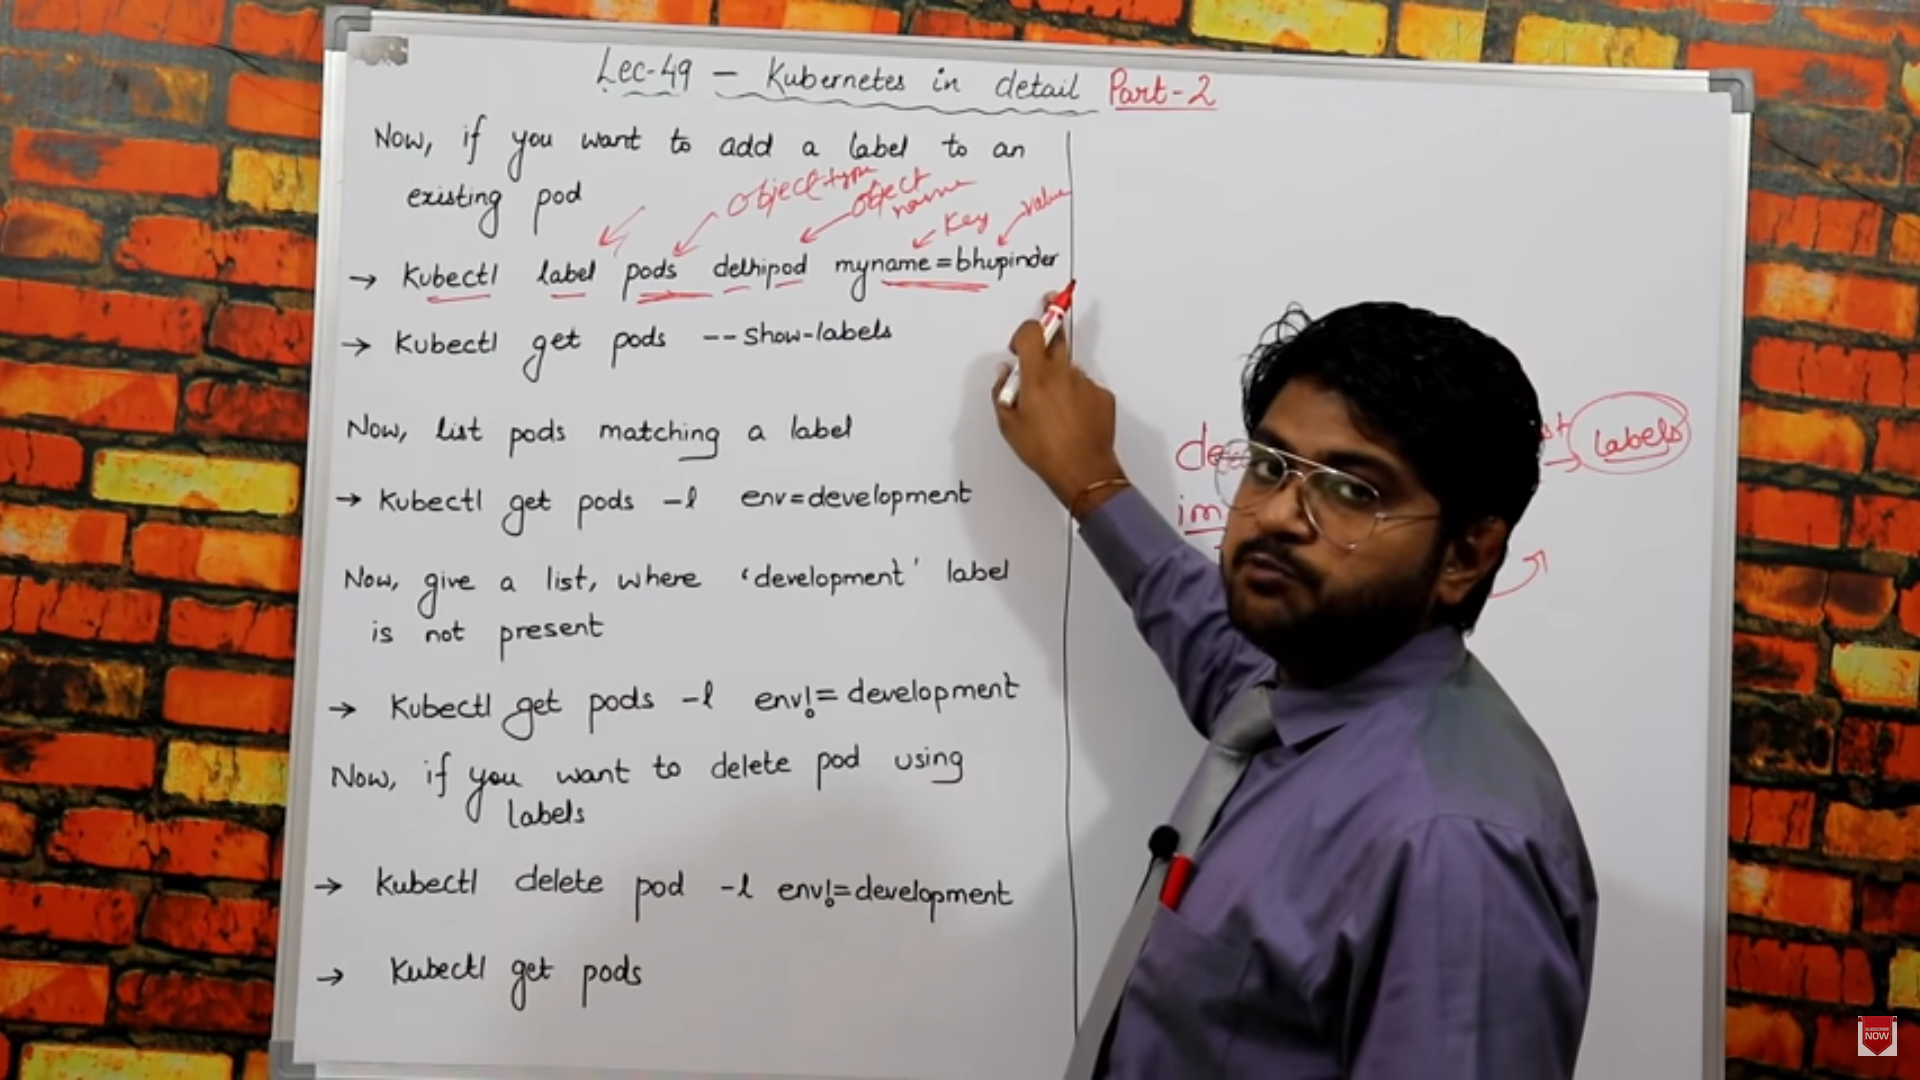 Lec-49 – Kubernetes in detail Part-2
Now, if you want to add a label to an
existing pod
object type
object
name
Key
value
→ Kubectl label pods delhipod myname=bhupinder
→ Kubectl get pods --show-labels
Now, list pods matching a label
→ Kubectl get pods -l env=development
Now, give a list, where 'development' label
is not present
→ Kubectl get pods -l env!=development
Now, if you want to delete pod using
labels
→ Kubectl delete pod -l env!=development
→ Kubectl get pods
labels
SUBSCRIBE
NOW